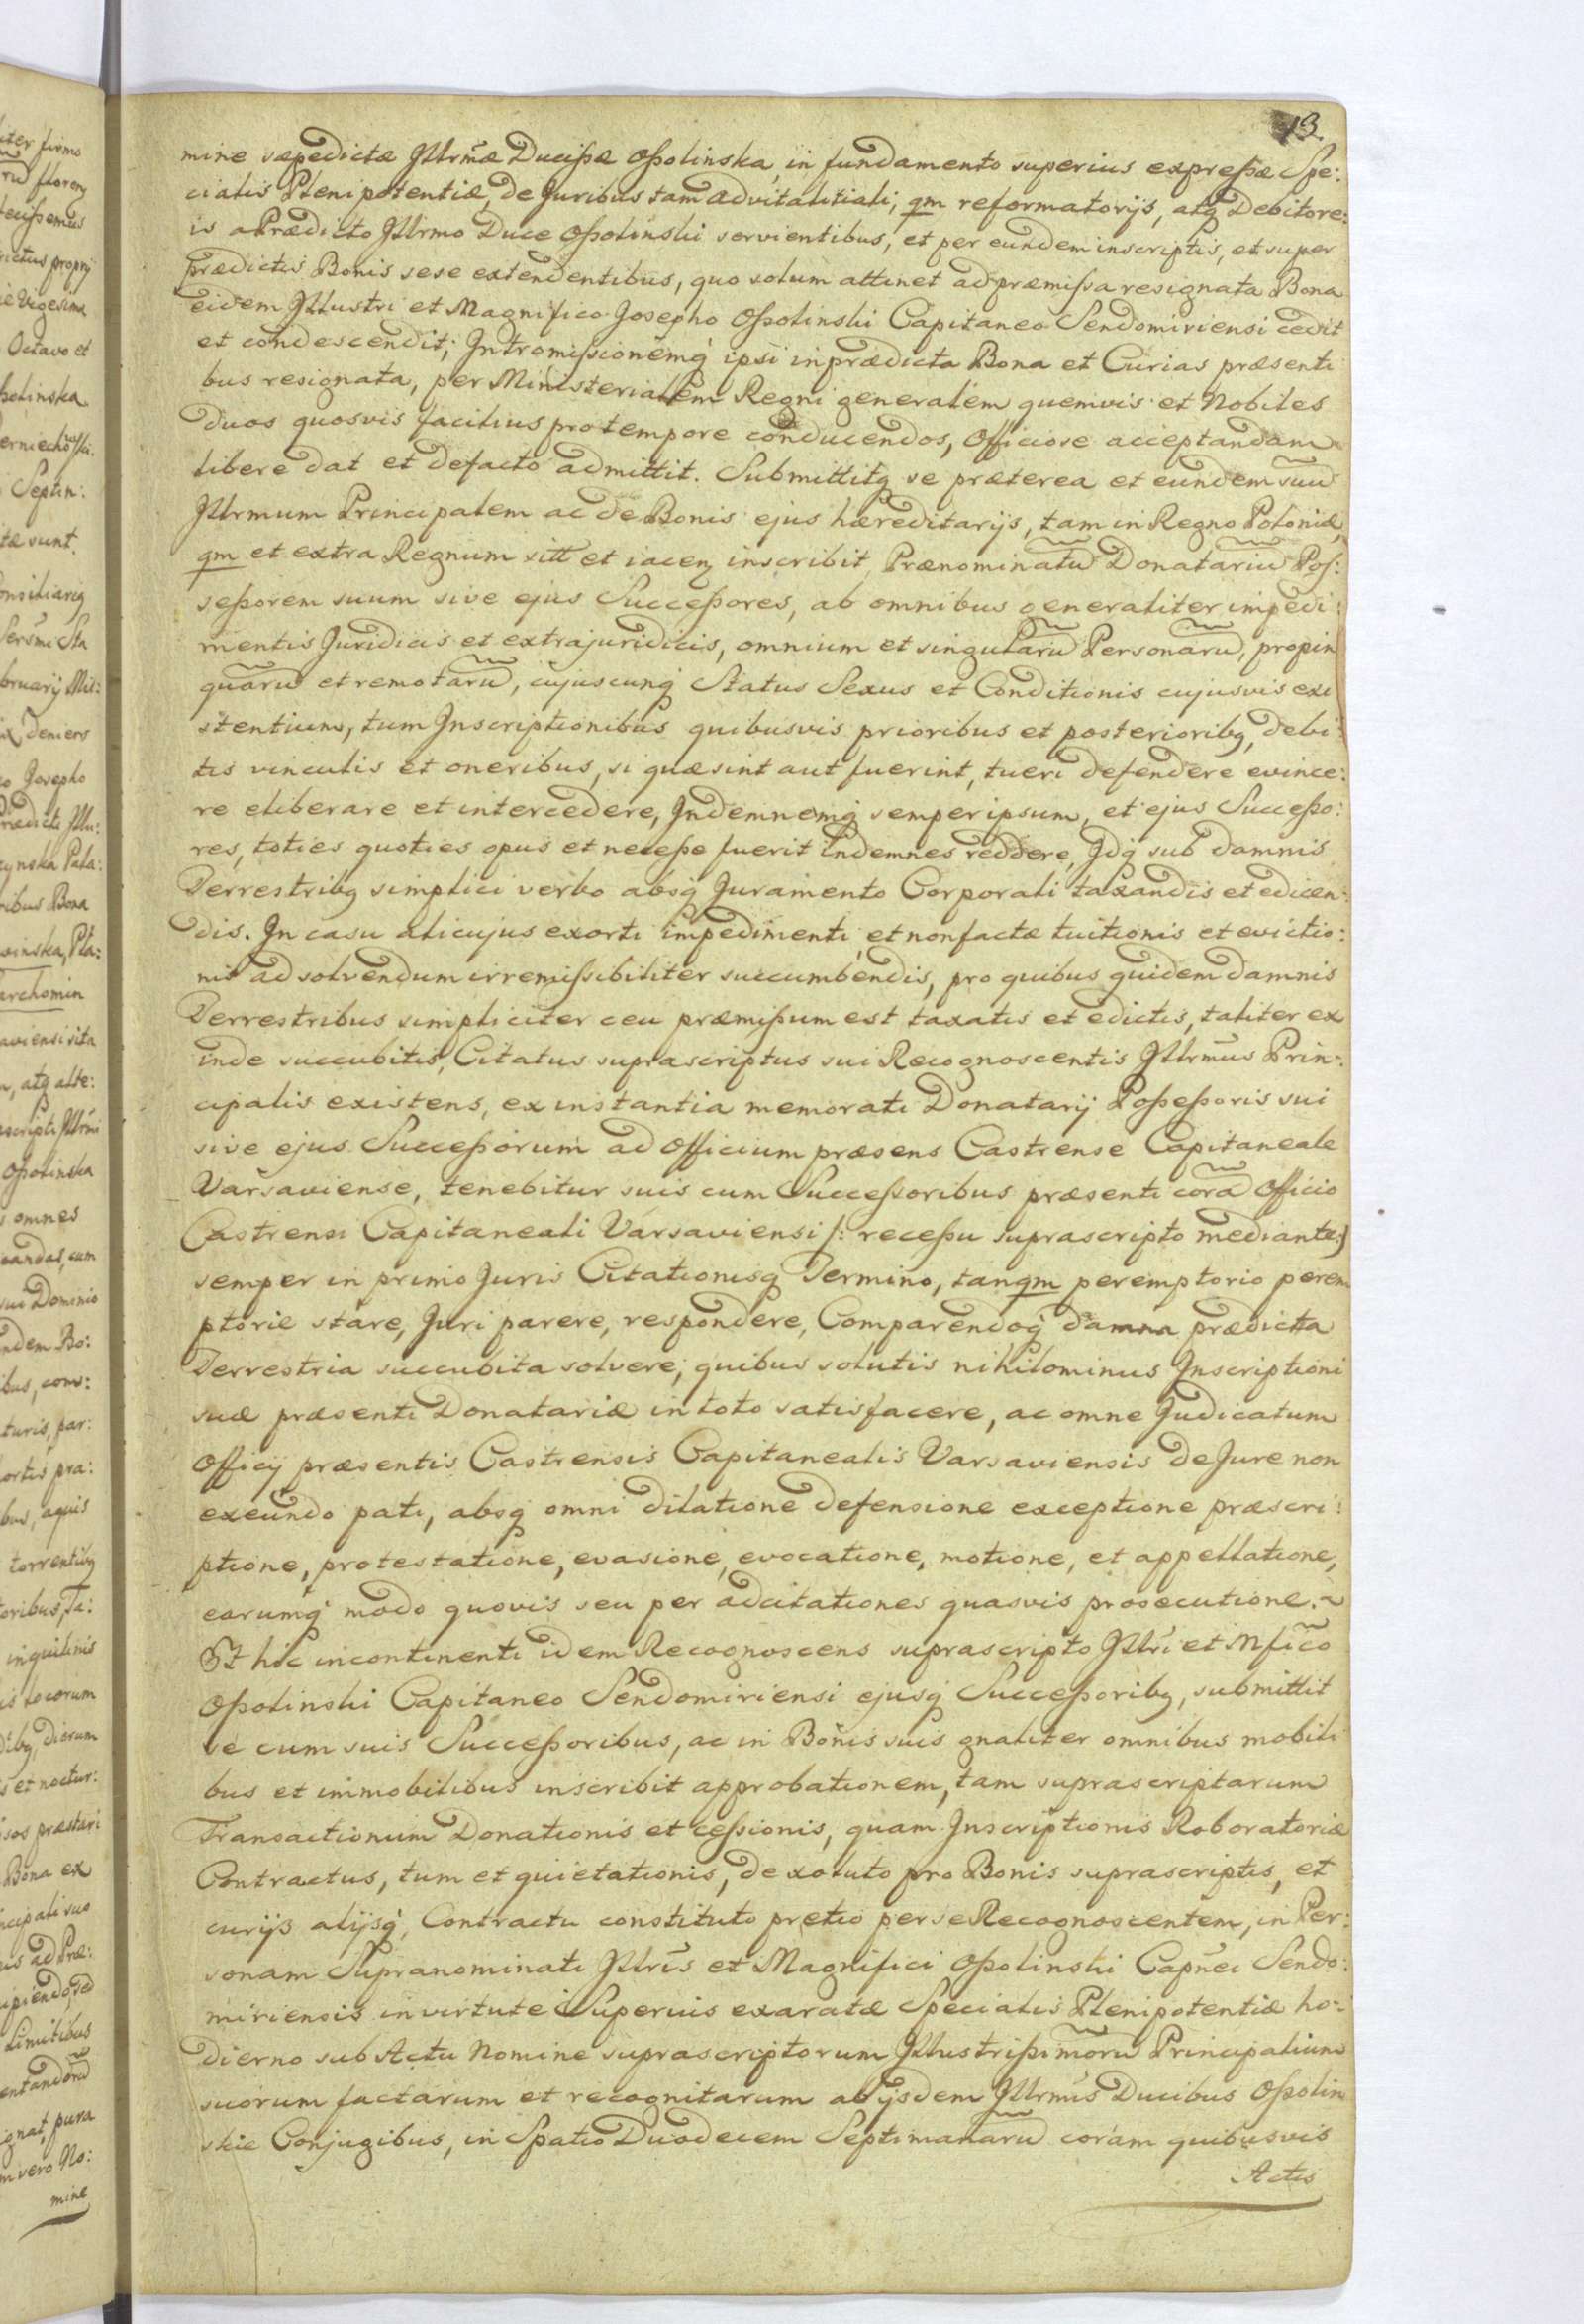 13.
mine sæpedictæ Jllrmæ Ducißæ Oßolinska, in fundamento superius expreßæ Spe:
cialis Plenipotentiæ, de Juribus tam advitalitiali, qm reformatorijs, atq Debitore:
is a Prædicto Jllrmo Duce Oßolinski servientibus, et per eundem inscriptis, et super
prædictis Bonis sese extendentibus, quo solum attinet ad præmissa resignata Bona
eidem Jllustri et Magnifico Josepho Oßolinski Capitaneo Sendomiriensi cedit
et condescendit; Jntromissionemq ipsi in prædicta Bona et Curias præsenti
bus resignata, per Ministerialem Regni generalem quemvis et Nobiles
duos quosvis facilius pro tempore conducendos, Officiose acceptandam
libere dat et defacto admittit. Submittitq se præterea et eundem suũ
Jllrmum Principalem ac de Bonis ejus hæreditarijs, tam in Regno Poloniæ,
qm et extra Regnum sitt et iacen inscribit, Prænominatũ Donatariũ Pos:
seßorem suum sive ejus Succeßores, ab omnibus generaliter impedi:
mentis Juridicis et extrajuridicis, omnium et singularũ Personarũ, propin
quarũ et remotarũ, cujuscunq Status Sexus et Conditionis cujusvis exi
stentium, tum Jnscriptionibus quibusvis prioribus et posterioribq, debi:
tis vinculis et oneribus, si quæ sint aut fuerint, tueri defendere evince:
re eliberare et intercedere, Jndemnemq semper ipsum, et ejus Succeßo:
res, toties quoties opus et neceße fuerit indemnes reddere, Jdq sub damnis
Terrestribq simplici verbo absq Juramento Corporali taxandis et edicen:
dis. Jn casu alicujus exorti impedimenti, et non factæ tuitionis et evictio:
nis ad solvendum irremissibiliter succumbendis, pro quibus quidem damnis
Terrestribus simpliciter ceu præmißum est taxatis et edictis, taliter ex
inde succubitis, Citatus suprascriptus sui Recognoscentis Jllrmus Prin:
cipalis existens, ex instantia memorati Donatarij Poßeßoris sui
sive ejus Succeßorum ad Officium præsens Castrense Capitaneale
Varsaviense, tenebitur suis cum Successoribus præsenti corã Officio
Castrensi Capitaneali Varsaviensi /: receßu suprascripto mediante :/
semper in primo Juris Citationisq Termino, tanqm peremptorio perem
ptorie stare, Juri parere, respondere, Comparendoq damna prædicta
Terrestria succubita solvere; quibus solutis nihilominus Jnscriptioni
suæ præsenti Donatariæ in toto satisfacere, ac omne Judicatum
Officij præsentis Castrensis Capitanealis Varsaviensis de Jure non
exeundo pati, absq omni dilatione defensione exceptione præscri:
ptione, protestatione, evasione, evocatione, motione, et appellatione,
earumq modo quovis seu per adcitationes quasvis prosecutione. ~
Et hic incontinenti idem Recognoscens suprascripto Jllri et Mfico
Oßolinski Capitaneo Sendomiriensi ejusq Succeßoribq, submittit
se cum suis Succeßoribus, ac in Bonis suis gnaliter omnibus mobili
bus et immobilibus inscribit approbationem, tam suprascriptarum
Transactionum Donationis et cessionis, quam Jnscriptionis Roboratoriæ
Contractus, tum et quietationis, de exoluto pro Bonis suprascriptis, et
curijs alijsq, Contractu constituto pretio per se Recognoscentem, in Per:
sonam Supranominati Jllris et Magnifici Oßolinski Capnei Sendo:
miriensis in virtute Superius exaratæ Specialis Plenipotentiæ ho:
dierno sub Actu Nomine suprascriptorum Jllustrißimorũ Principalium
suorum factarum et recognitarum ab ijsdem Jllrmis Ducibus Oßolin
skie Conjugibus, in Spatio Duodecem Septimanarũ coram quibusvis
Actis